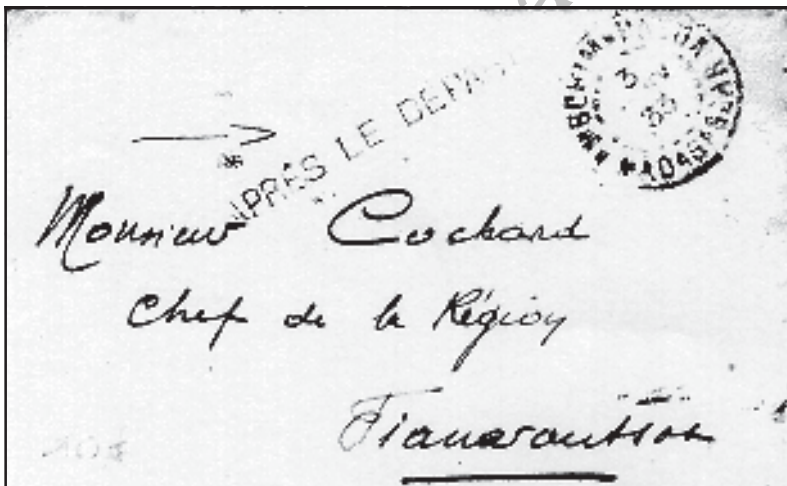 APRÈS LE DÉPART
3
35
MADAGASCAR
Monsieur Cochard
Chef de la Région
Fianarantsoa